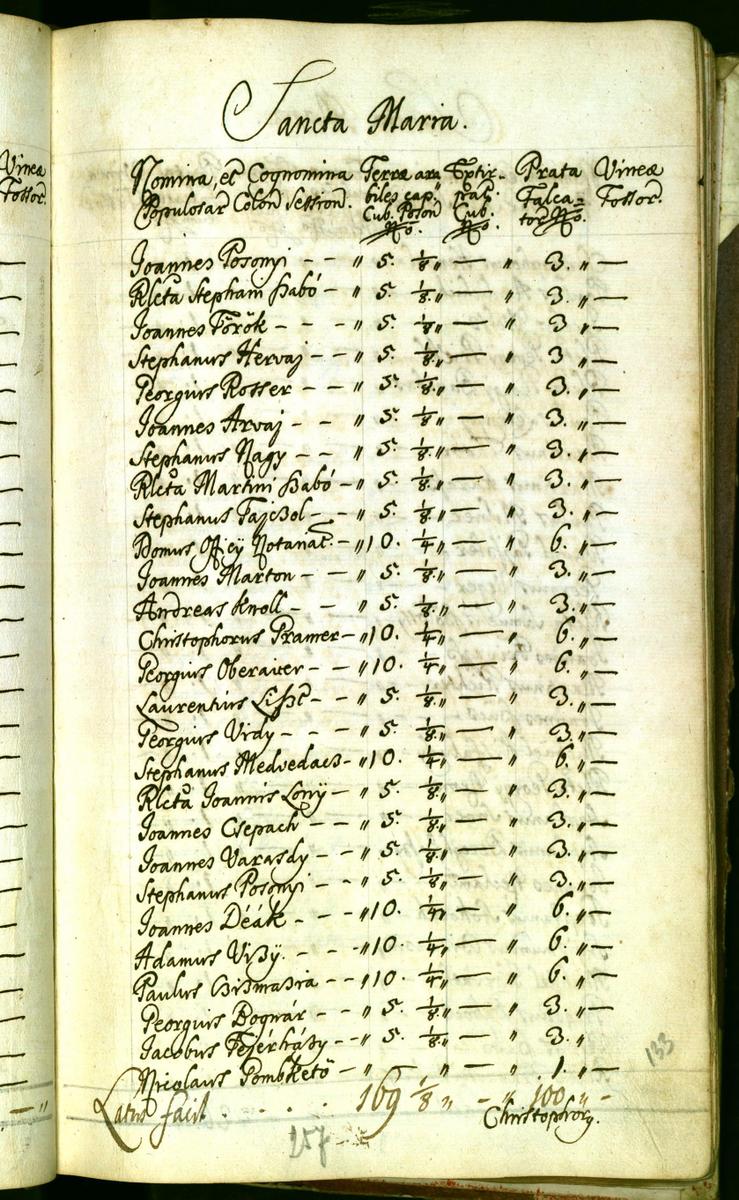 Vineæ
Fossor.
Sancta Maria.
Nomina, et Cognomina Terræ ara Extir- Prata Vineæ
Populosar Colon Session. biles cap. Falca- Fossor.
Cub. Poson Cub. tor No.
No. No.
Joannes Posonyi - - " 5. 1/8 " — " 3. " —
Rlcta Stephani Szabó - " 5. 1/8 " — " 3. " —
Joannes Török - - - " 5. 1/8 " — " 3 " —
Stephanus Hervaj - - " 5. 1/8 " — " 3 " —
Georgius Rosser - - " 5. 1/8 " — " 3. " —
Joannes Arvaj - - " 5. 1/8 " — " 3. " —
Stephanus Nagy - - " 5. 1/8 " — " 3. " —
Rlcta Martini Szabó - " 5. 1/8 " — " 3. " —
Stephanus - " 5. 1/8 " — " 3. " —
Domus Officÿ Notarial. - " 10. 1/4 " — " 6. " —
Joannes Marton - - " 5. 1/8 " — " 3. " —
Andreas Knoll - - " 5. 1/8 " — " 3. " —
Christophorus Pramer - " 10. 1/4 " — " 6. " —
Georgius - - " 10. 1/4 " — " 6. " —
Laurentius - - " 5. 1/8 " — " 3. " —
Georgius Vidy - - - " 5. 1/8 " — " 3. " —
Stephanus Medvedacs - " 10. 1/4 " — " 6. " —
Rlcta Joannis Lonÿ - - " 5. 1/8 " — " 3. " —
Joannes Csepach - - " 5. 1/8 " — " 3. " —
Joannes Varasdy - - " 5. 1/8 " — " 3. " —
Stephanus Posonyi - - " 5. 1/8 " — " 3. " —
Joannes Déák - - - " 10. 1/4 " — " 6. " —
Adamus Viszÿ. - - - " 10. 1/4 " — " 6. " —
Paulus - - " 10. 1/4 " — " 6. " —
Georgius Bognár - - " 5. 1/8 " — " 3. " —
Jacobus - - " 5. 1/8 " — " 3. "
Nicolaus Gombkető - " " — " 1. " —
Latus facit . . . . 169 1/8 " - " 100 " -
Christophorg.
133
257